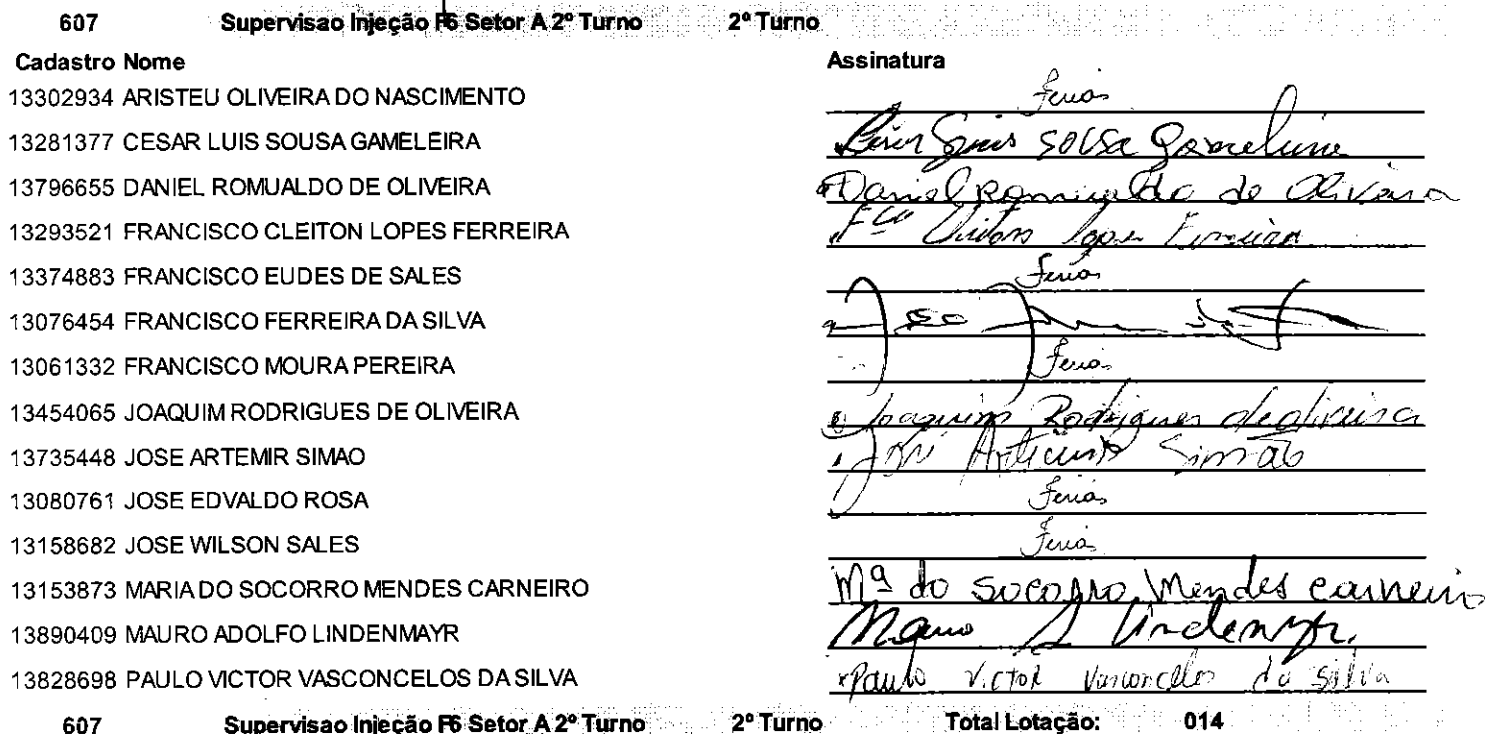 607 Supervisao Injeção F6 Setor A 2º Turno 2º Turno
Cadastro Nome Assinatura
13302934 ARISTEU OLIVEIRA DO NASCIMENTO Ferias
13281377 CESAR LUIS SOUSA GAMELEIRA Cesar Luis SOUSA Gameleira
13796655 DANIEL ROMUALDO DE OLIVEIRA Daniel Romualdo de Oliveira
13293521 FRANCISCO CLEITON LOPES FERREIRA Fco Cleiton Lopes Ferreira
13374883 FRANCISCO EUDES DE SALES Ferias
13076454 FRANCISCO FERREIRA DA SILVA
13061332 FRANCISCO MOURA PEREIRA Ferias
13454065 JOAQUIM RODRIGUES DE OLIVEIRA Joaquim Rodrigues de oliveira
13735448 JOSE ARTEMIR SIMAO José Artemir Simão
13080761 JOSE EDVALDO ROSA Ferias
13158682 JOSE WILSON SALES Ferias
13153873 MARIA DO SOCORRO MENDES CARNEIRO Mª do Socorro Mendes carneiro
13890409 MAURO ADOLFO LINDENMAYR Mauro A Lindenmyr.
13828698 PAULO VICTOR VASCONCELOS DA SILVA Paulo Victor Vasconcelos da Silva
607 Supervisao Injeção F6 Setor A 2º Turno 2º Turno Total Lotação: 014